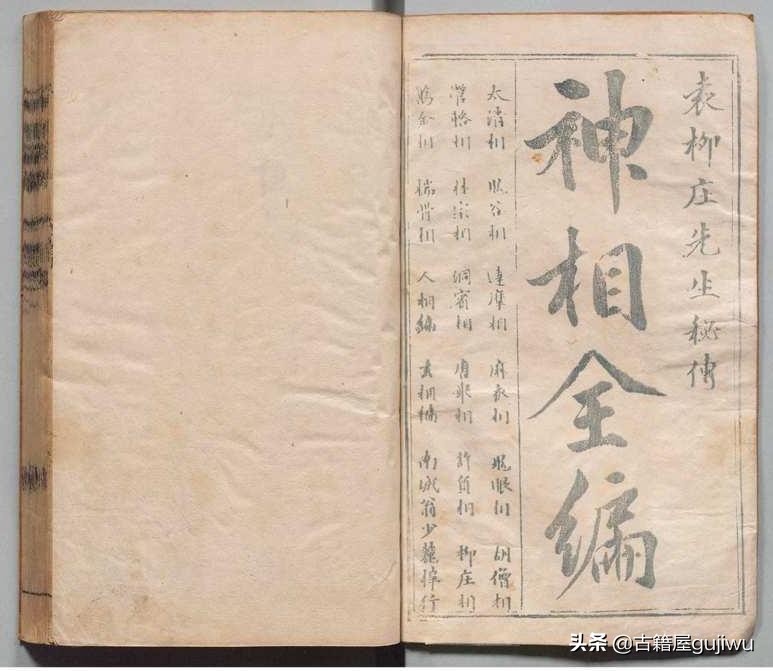 袁柳庄先生秘傳
神相全編
太清相 鬼谷相 達摩相 麻衣相 鬼眼相 胡僧相
管輅相 林宗相 洞賓相 唐舉相 許負相 柳庄相
相 揣骨相 人相編 相編 南城翁少麓梓行
头条 @古籍屋gujiwu